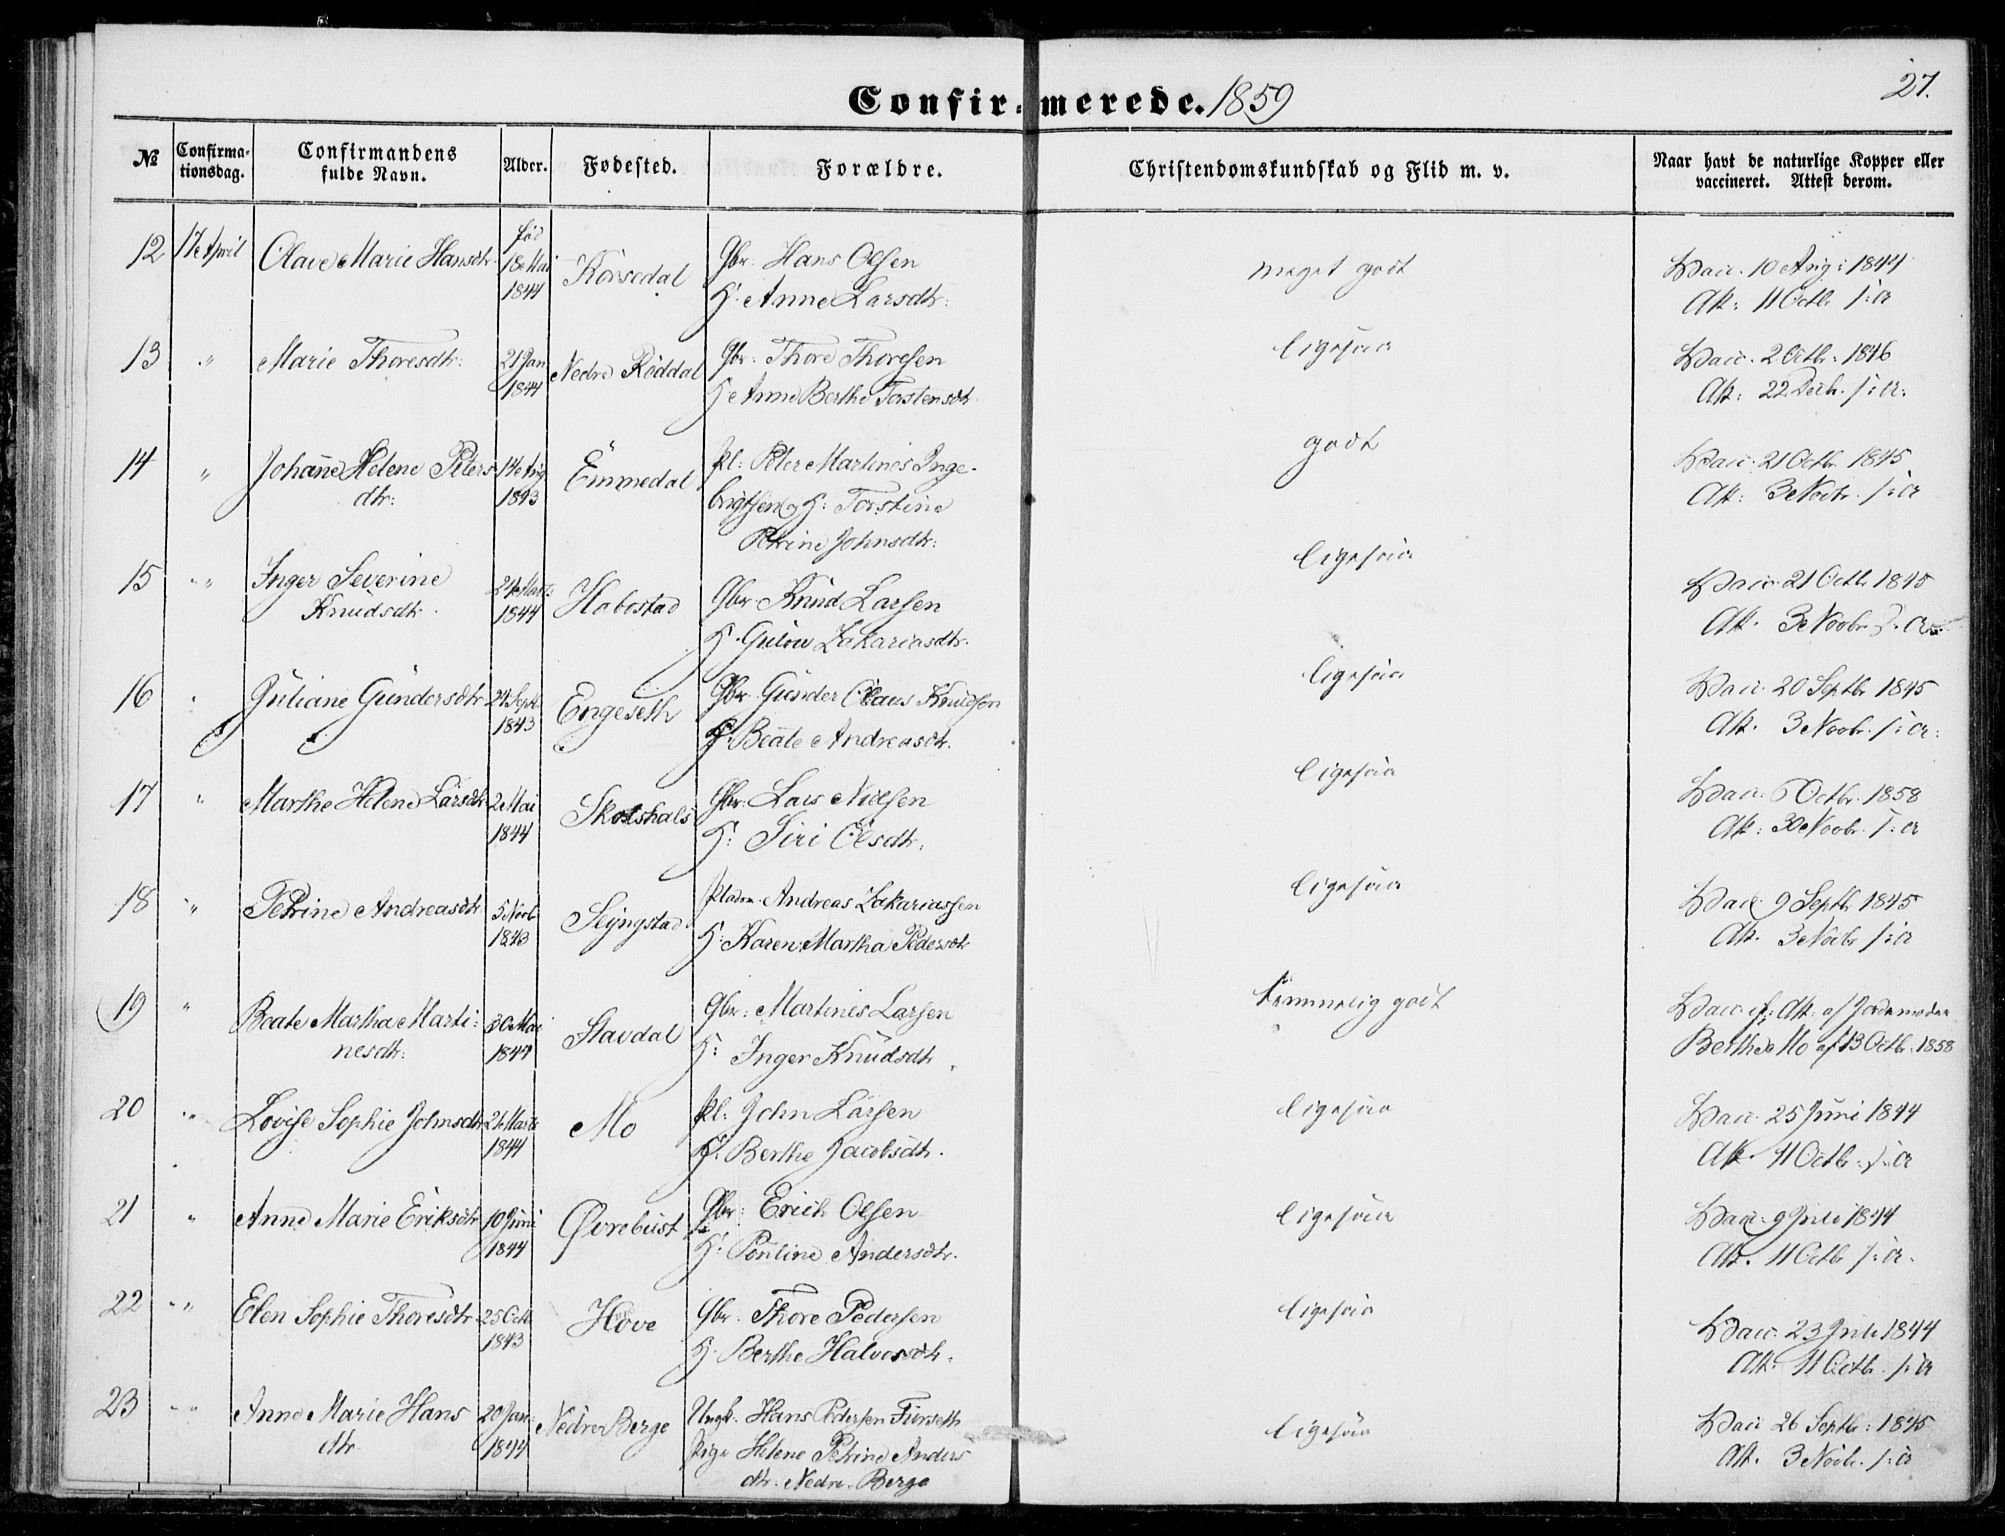 27.
Confir-merede. 1859
№ Confirma-tionsdag. Confirmandens fulde Navn. Alder. Fødested. Forældre. Christendomskundskab og Flid m. v. Naar havt de naturlige Kopper eller vaccineret. Attest derom.
12 17e April Olave Marie Hansdtr. fød 18e Mai 1844 Korsedal Gbr. Hans Olsen
H. Anne Larsdtr: meget godt Vacc. 10 Aug: 1844
Att: 11 Octbr s: a
13 " Marie Thoresdtr: 21 Jan 1844 Nedre Röddal Gbr. Thore Thoresen
H Anne Berthe Torstensdtr ligesaa Vacc. 2 Octbr: 1846
Att: 22 Decbr. s: a:
14 " Johanne Helene Peters-
dtr: 14e Aug 1843 Emmedal pl: Peter Martinus Inge-
brigtsen og H: Torstine
Petrine Johnsdtr: godt Vacc. 21 Octbr. 1845
Att: 3 Novbr. s: a
15 " " Inger Severine
Knudsdtr. 24e Marts 1844 Habostad Gbr. Knud Larsen
H. Gulou Zakariasdtr. ligesaa Vacc. 21 Octb. 1845
Att. 3 Novbr. s. a.
16 " Juliane Gundersdtr 24 Sept. 1843 Engeseth Gbr. Gunder Claus Knudsen
H. Beate Andreasdtr. ligesaa Vacc. 20 Septbr 1845
Att. 3 Novbr. s: a:
17 " Marthe Helene Larsdtr 2 Mai 1844 Skotshals Gbr. Lars Nielsen
H: Siri Olsdtr. ligesaa Vacc. 6 Octbr. 1858
Att: 30 Novbr. s: a
18 " Petrine Andreasdtr 5 Novb 1843 Slyngstad pladsm. Andreas Zakariassen
H. Karen Martha Pedersdtr ligesaa Vacc. 9 Septb. 1845
Att. 3 Novbr s: a
19 " Beate Martha Marti-
nesdtr: 30 Mai 1844 Stavdal Gbr: Martines Larsen
H: Inger Knudsdtr temmelig godt Vacc. if: Att: af Jordemoder
Berthe Mo af 13 Octbr. 1858
20 " Lovise Sophie Johnsdtr 26 Marts 1844 Mo pl: John Larsen
H. Berthe Jacobsdtr. ligesaa Vacc. 25 Juni 1844
Att. 11 Octbr. s: a
21 " Anne Marie Eriksdtr 10 Juni 1844 Øvrebust Gbr: Erich Olsen
H. Pouline Andersdtr. ligesaa Vacc. 9 Juli 1844
Att. 11 Octbr s: a.
22 " " Elen Sophie Thoresdtr 25 Octb 1843 Hove Gbr. Thore Pedersen
H. Berthe Halvorsdtr. ligesaa Vacc. 23 Juli 1844
Att. 11 Octb. s: a
23 " " Anne Marie Hans
dtr 20 Jan: 1844 Nedre Berge Ungk. Hans Pedersen Furseth
Pige Helene Petrine Anders
dtr. Nedre Berge ligesaa Vacc 26 Septbr: 1845
Att. 3 Novb. s: a